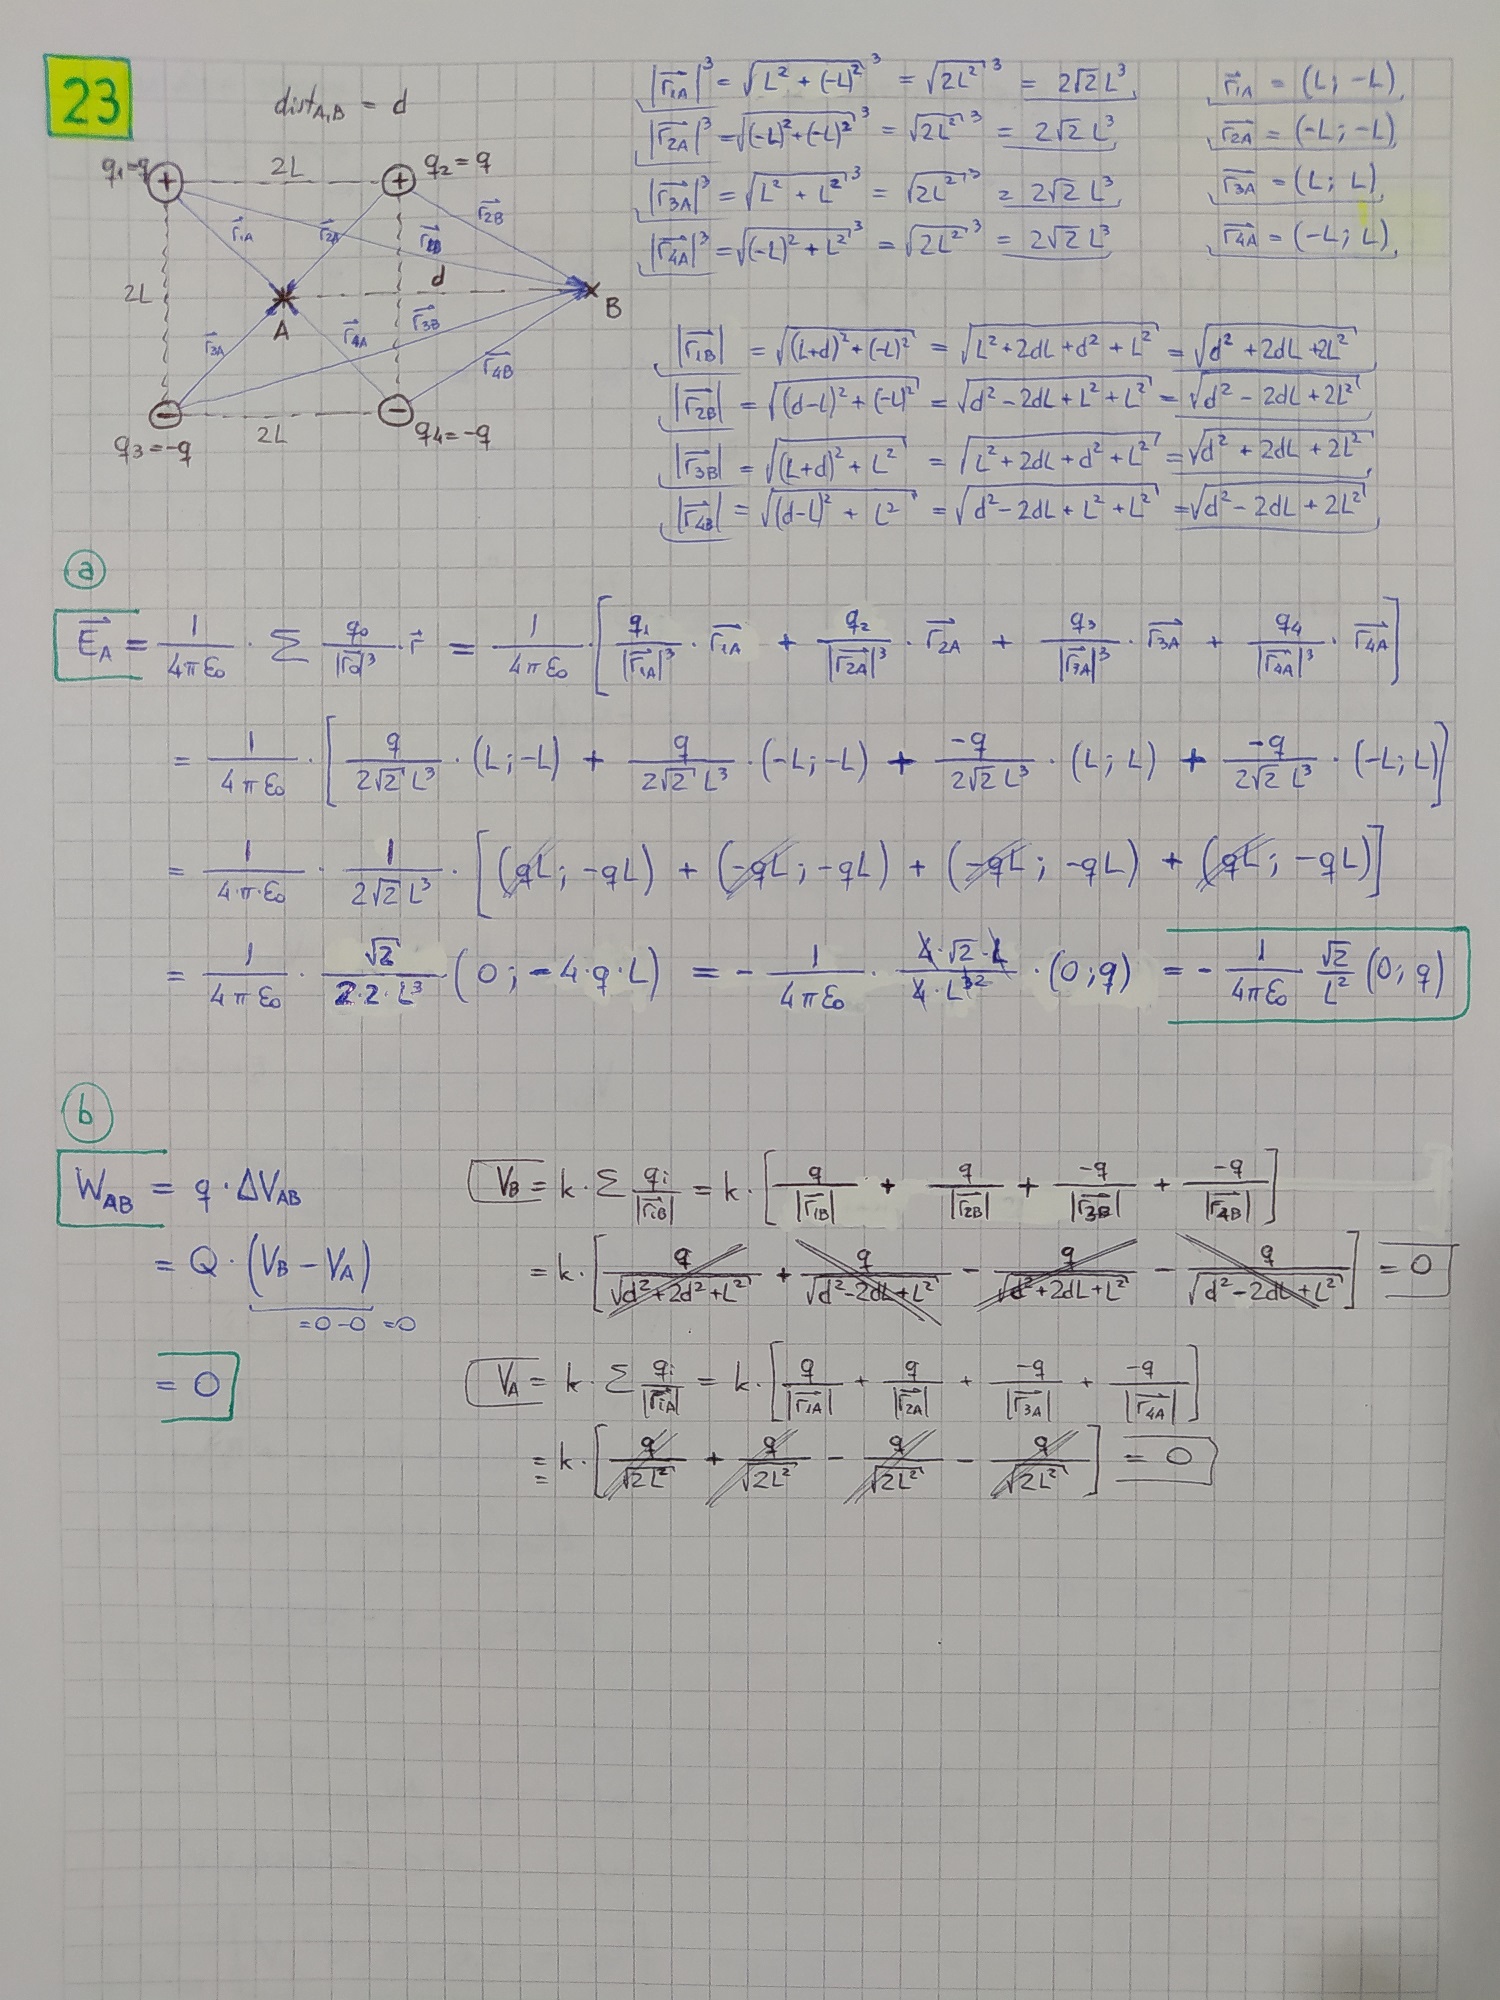 23
dist_A,B = d
q₁=q 2L q₂ = q
r⃗₁A r⃗₂A r⃗₂B
2L d
A B
r⃗₃A r⃗₄A r⃗₃B r⃗₄B
q₃=-q 2L q₄=-q
|r⃗₁A|³ = √(L² + (-L)²)³ = √(2L²)³ = 2√2 L³
|r⃗₂A|³ = √((-L)² + (-L)²)³ = √(2L²)³ = 2√2 L³
|r⃗₃A|³ = √(L² + L²)³ = √(2L²)³ = 2√2 L³
|r⃗₄A|³ = √((-L)² + L²)³ = √(2L²)³ = 2√2 L³
r⃗₁A = (L; -L)
r⃗₂A = (-L; -L)
r⃗₃A = (L; L)
r⃗₄A = (-L; L)
|r⃗₁B| = √((L+d)² + (-L)²) = √(L² + 2dL + d² + L²) = √(d² + 2dL + 2L²)
|r⃗₂B| = √((d-L)² + (-L)²) = √(d² - 2dL + L² + L²) = √(d² - 2dL + 2L²)
|r⃗₃B| = √((L+d)² + L²) = √(L² + 2dL + d² + L²) = √(d² + 2dL + 2L²)
|r⃗₄B| = √((d-L)² + L²) = √(d² - 2dL + L² + L²) = √(d² - 2dL + 2L²)
a
E⃗A = 1/(4πε₀) · Σ q₀/|r⃗₀|³ · r⃗ = 1/(4πε₀) · [q₁/|r⃗₁A|³ · r⃗₁A + q₂/|r⃗₂A|³ · r⃗₂A + q₃/|r⃗₃A|³ · r⃗₃A + q₄/|r⃗₄A|³ · r⃗₄A]
= 1/(4πε₀) · [q/(2√2 L³) · (L; -L) + q/(2√2 L³) · (-L; -L) + -q/(2√2 L³) · (L; L) + -q/(2√2 L³) · (-L; L)]
= 1/(4·π·ε₀) · 1/(2√2 L³) · [(qL; -qL) + (-qL; -qL) + (-qL; -qL) + (qL; -qL)]
= 1/(4πε₀) · √2/(2·2·L³) (0; -4·q·L) = - 1/(4πε₀) · (4·√2·L)/(4·L³²) · (0; q) = - 1/(4πε₀) √2/L² (0; q)
b
W_AB = q · ΔV_AB
= Q · (V_B - V_A)
=0-0 =0
= 0
V_B = k · Σ qᵢ/|r⃗ᵢB| = k · [q/|r⃗₁B| + q/|r⃗₂B| + -q/|r⃗₃B| + -q/|r⃗₄B|]
= k · [q/√(d²+2d²+L²) + q/√(d²-2dL+L²) - q/√(d²+2dL+L²) - q/√(d²-2dL+L²)] = 0
V_A = k · Σ qᵢ/|r⃗ᵢA| = k · [q/|r⃗₁A| + q/|r⃗₂A| + -q/|r⃗₃A| + -q/|r⃗₄A|]
= k · [q/√(2L²) + q/√(2L²) - q/√(2L²) - q/√(2L²)] = 0